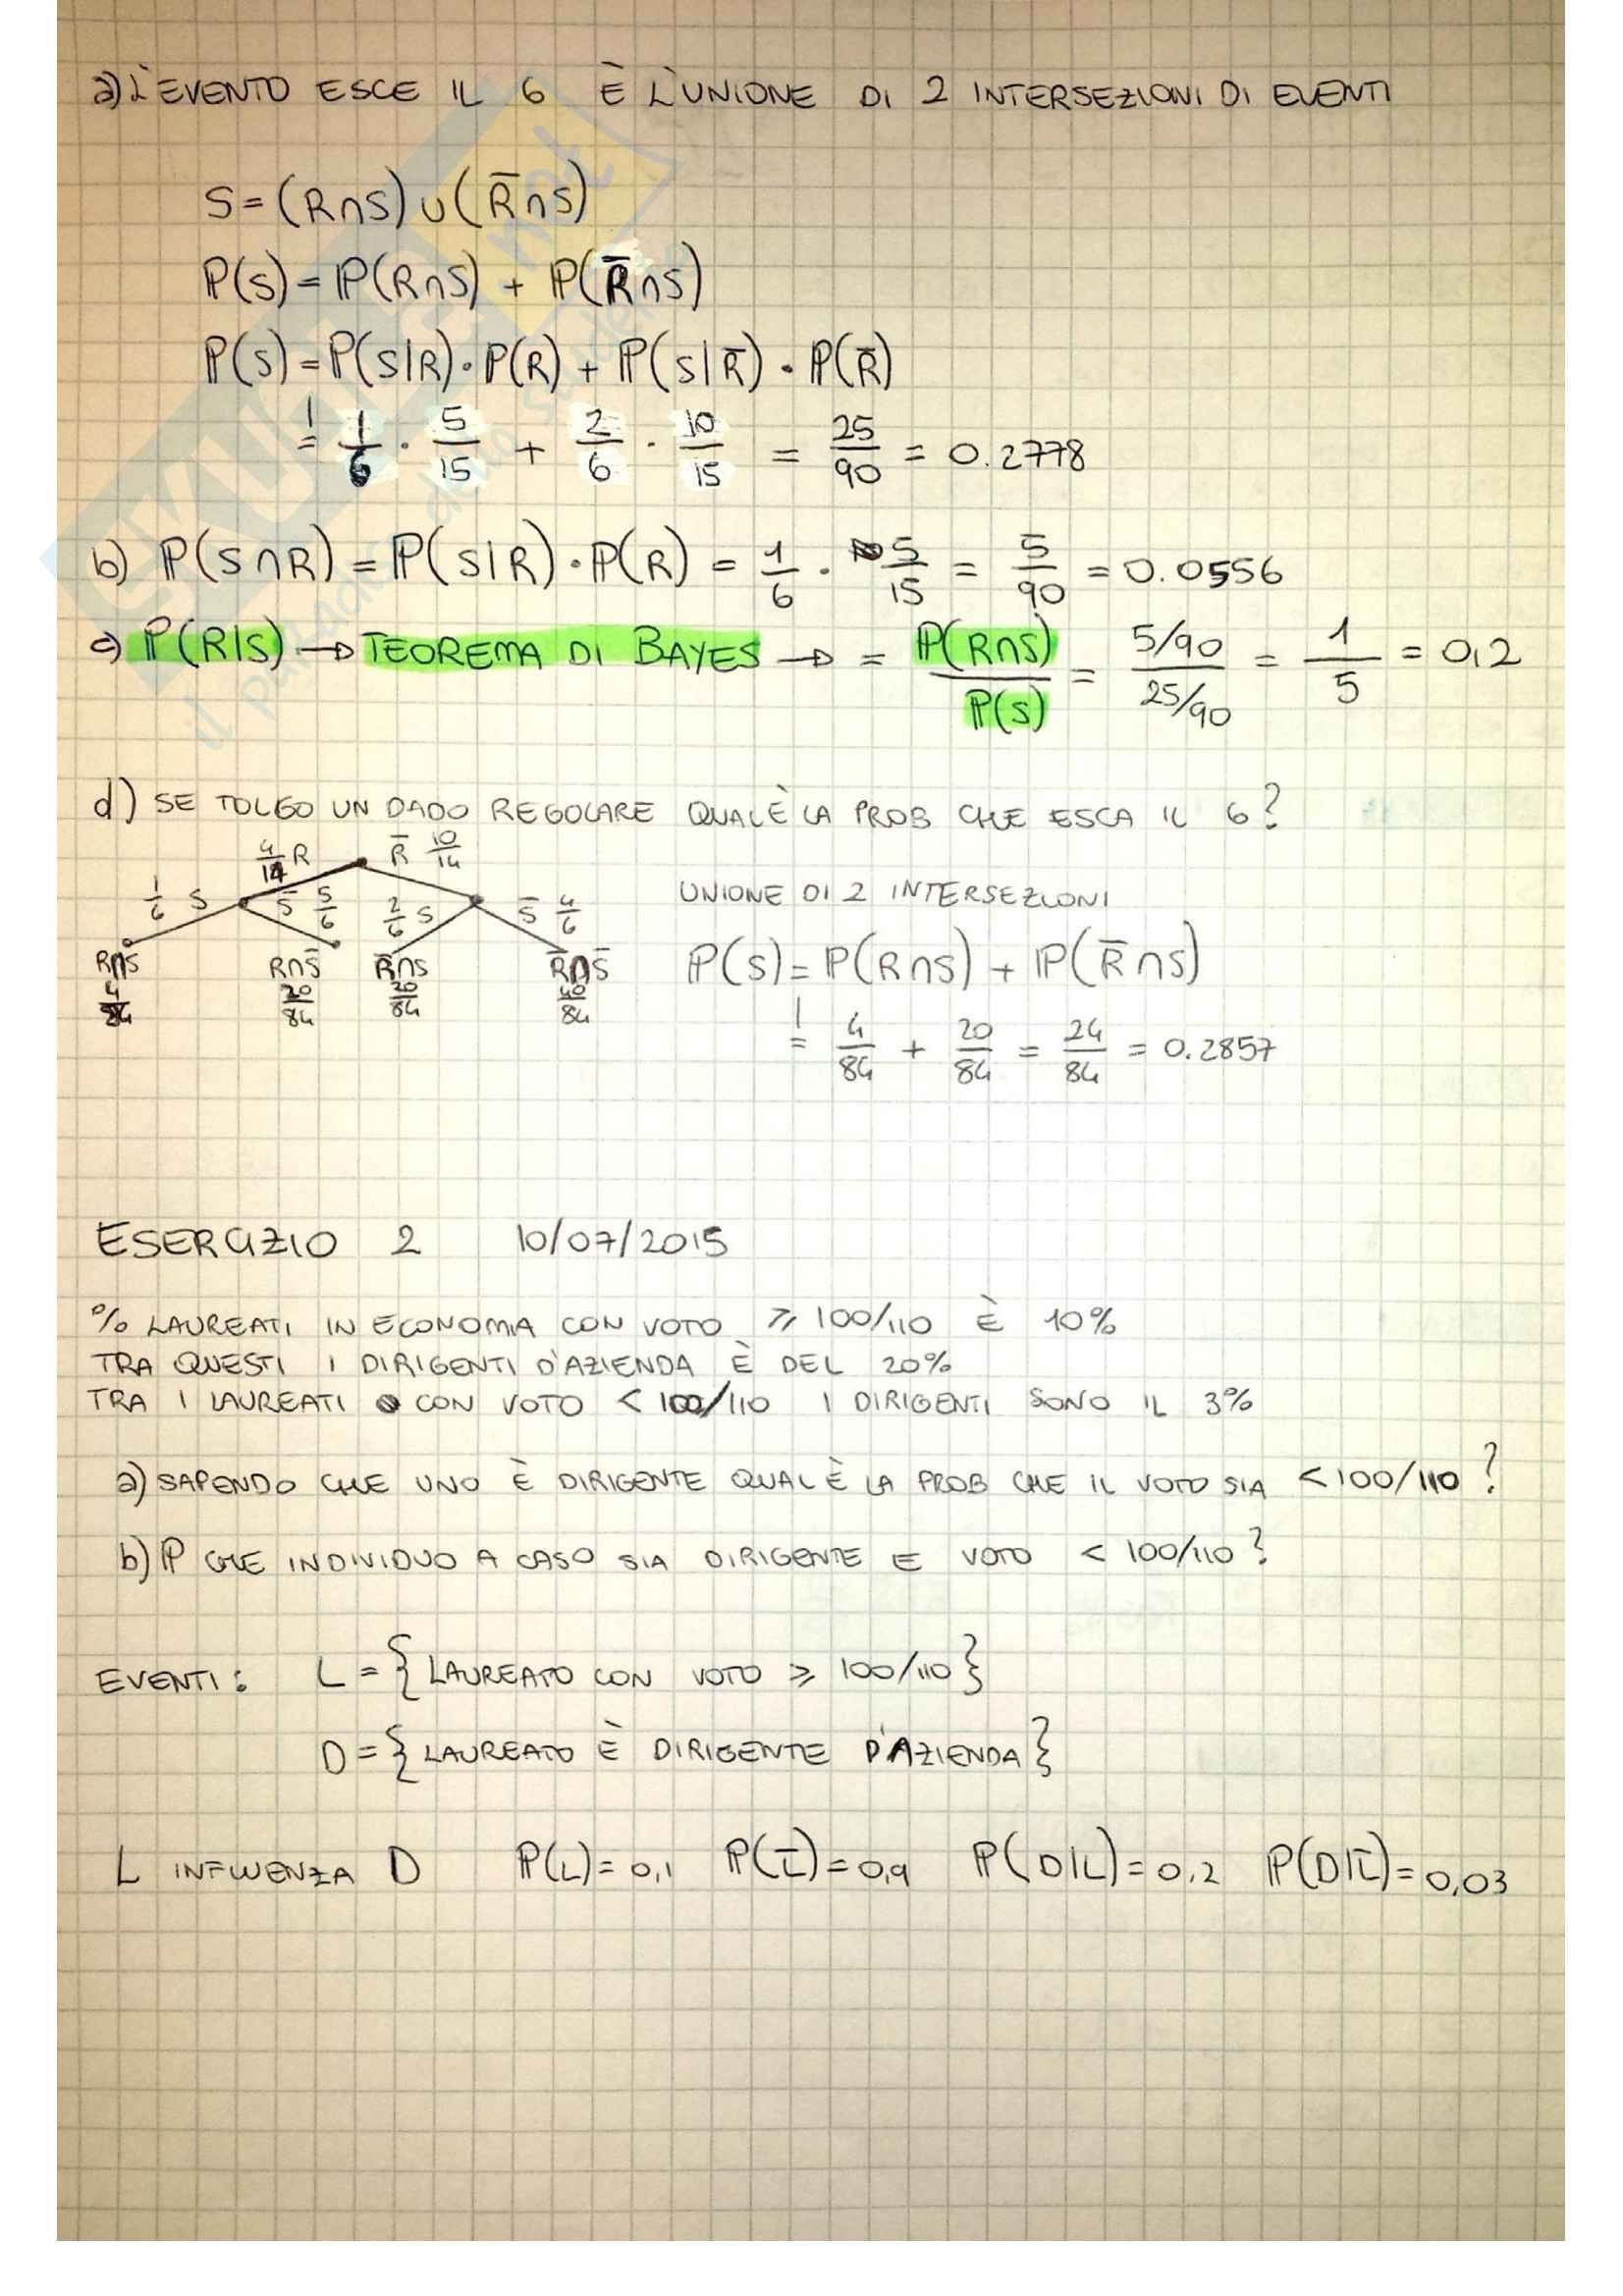 a) L'EVENTO ESCE IL 6 È L'UNIONE DI 2 INTERSEZIONI DI EVENTI
S = (R∩S) ∪ (R̅∩S)
ℙ(S) = ℙ(R∩S) + ℙ(R̅∩S)
ℙ(S) = ℙ(S|R) · ℙ(R) + ℙ(S|R̅) · ℙ(R̅)
= 1/6 · 5/15 + 2/6 · 10/15 = 25/90 = 0.2778
b) ℙ(S∩R) = ℙ(S|R) · ℙ(R) = 1/6 · 5/15 = 5/90 = 0.0556
c) ℙ(R|S) → TEOREMA DI BAYES → = ℙ(R∩S)/ℙ(S) = (5/90)/(25/90) = 1/5 = 0,2
d) SE TOLGO UN DADO REGOLARE QUAL È LA PROB CHE ESCA IL 6?
4/14 R R̅ 10/14
1/6 S S̅ 5/6 2/6 S S̅ 4/6
R∩S R∩S̅ R̅∩S R̅∩S̅
4/84 20/84 20/84 40/84
UNIONE DI 2 INTERSEZIONI
ℙ(S) = ℙ(R∩S) + ℙ(R̅∩S)
= 4/84 + 20/84 = 24/84 = 0.2857
ESERCIZIO 2 10/07/2015
% LAUREATI IN ECONOMIA CON VOTO ≥ 100/110 È 10%
TRA QUESTI I DIRIGENTI D'AZIENDA È DEL 20%
TRA I LAUREATI CON VOTO < 100/110 I DIRIGENTI SONO IL 3%
a) SAPENDO CHE UNO È DIRIGENTE QUAL È LA PROB CHE IL VOTO SIA < 100/110?
b) ℙ CHE INDIVIDUO A CASO SIA DIRIGENTE E VOTO < 100/110?
EVENTI: L = {LAUREATO CON VOTO ≥ 100/110}
D = {LAUREATO È DIRIGENTE D'AZIENDA}
L INFLUENZA D ℙ(L) = 0,1 ℙ(L̅) = 0,9 ℙ(D|L) = 0,2 ℙ(D|L̅) = 0,03